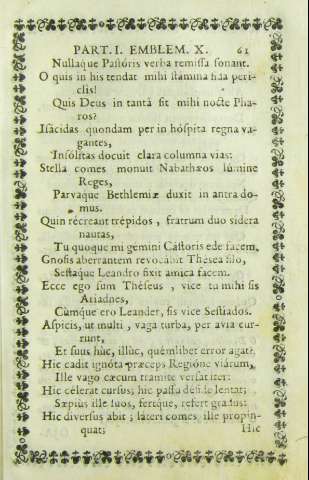 PART. I. EMBLEM. X. 61
Nullaque Pastóris verba remissa sonant.
O quis in his tendat mihi stamina fida peri-
clis!
Quis Deus in tantâ sit mihi nocte Pha-
ros?
Isácidas quondam per inhóspita regna va-
gantes,
Insolitas docuit clara columna vias:
Stella comes monuit Nabathæos lúmine
Reges,
Parvaque Bethlemiæ duxit in antra do-
mus.
Quin récreant trépidos, fratrum duo sidera
nautas,
Tu quoque mi gemini Cástoris ede facem,
Gnosis aberrantem revocabit Thésea filo,
Sestaque Leandro fixit amica facem.
Ecce ego sum Théseus, vice tu mihi sis
Ariadnes,
Cúmque ero Leander, sis vice Sestiados.
Aspicis, ut multi, vaga turba, per avia cur-
runt,
Et suus húc, illúc, quémlibet error agat;
Hic cadit ignóta præceps Regióne viárum,
Ille vago cæcum tramite versat iter:
Hic célerat cursus; hic passu déside lentat;
Sæpius ille suos, fertque, refert gradus:
Hic diversus abit; láteri comes, ille propin-
quat; Hic